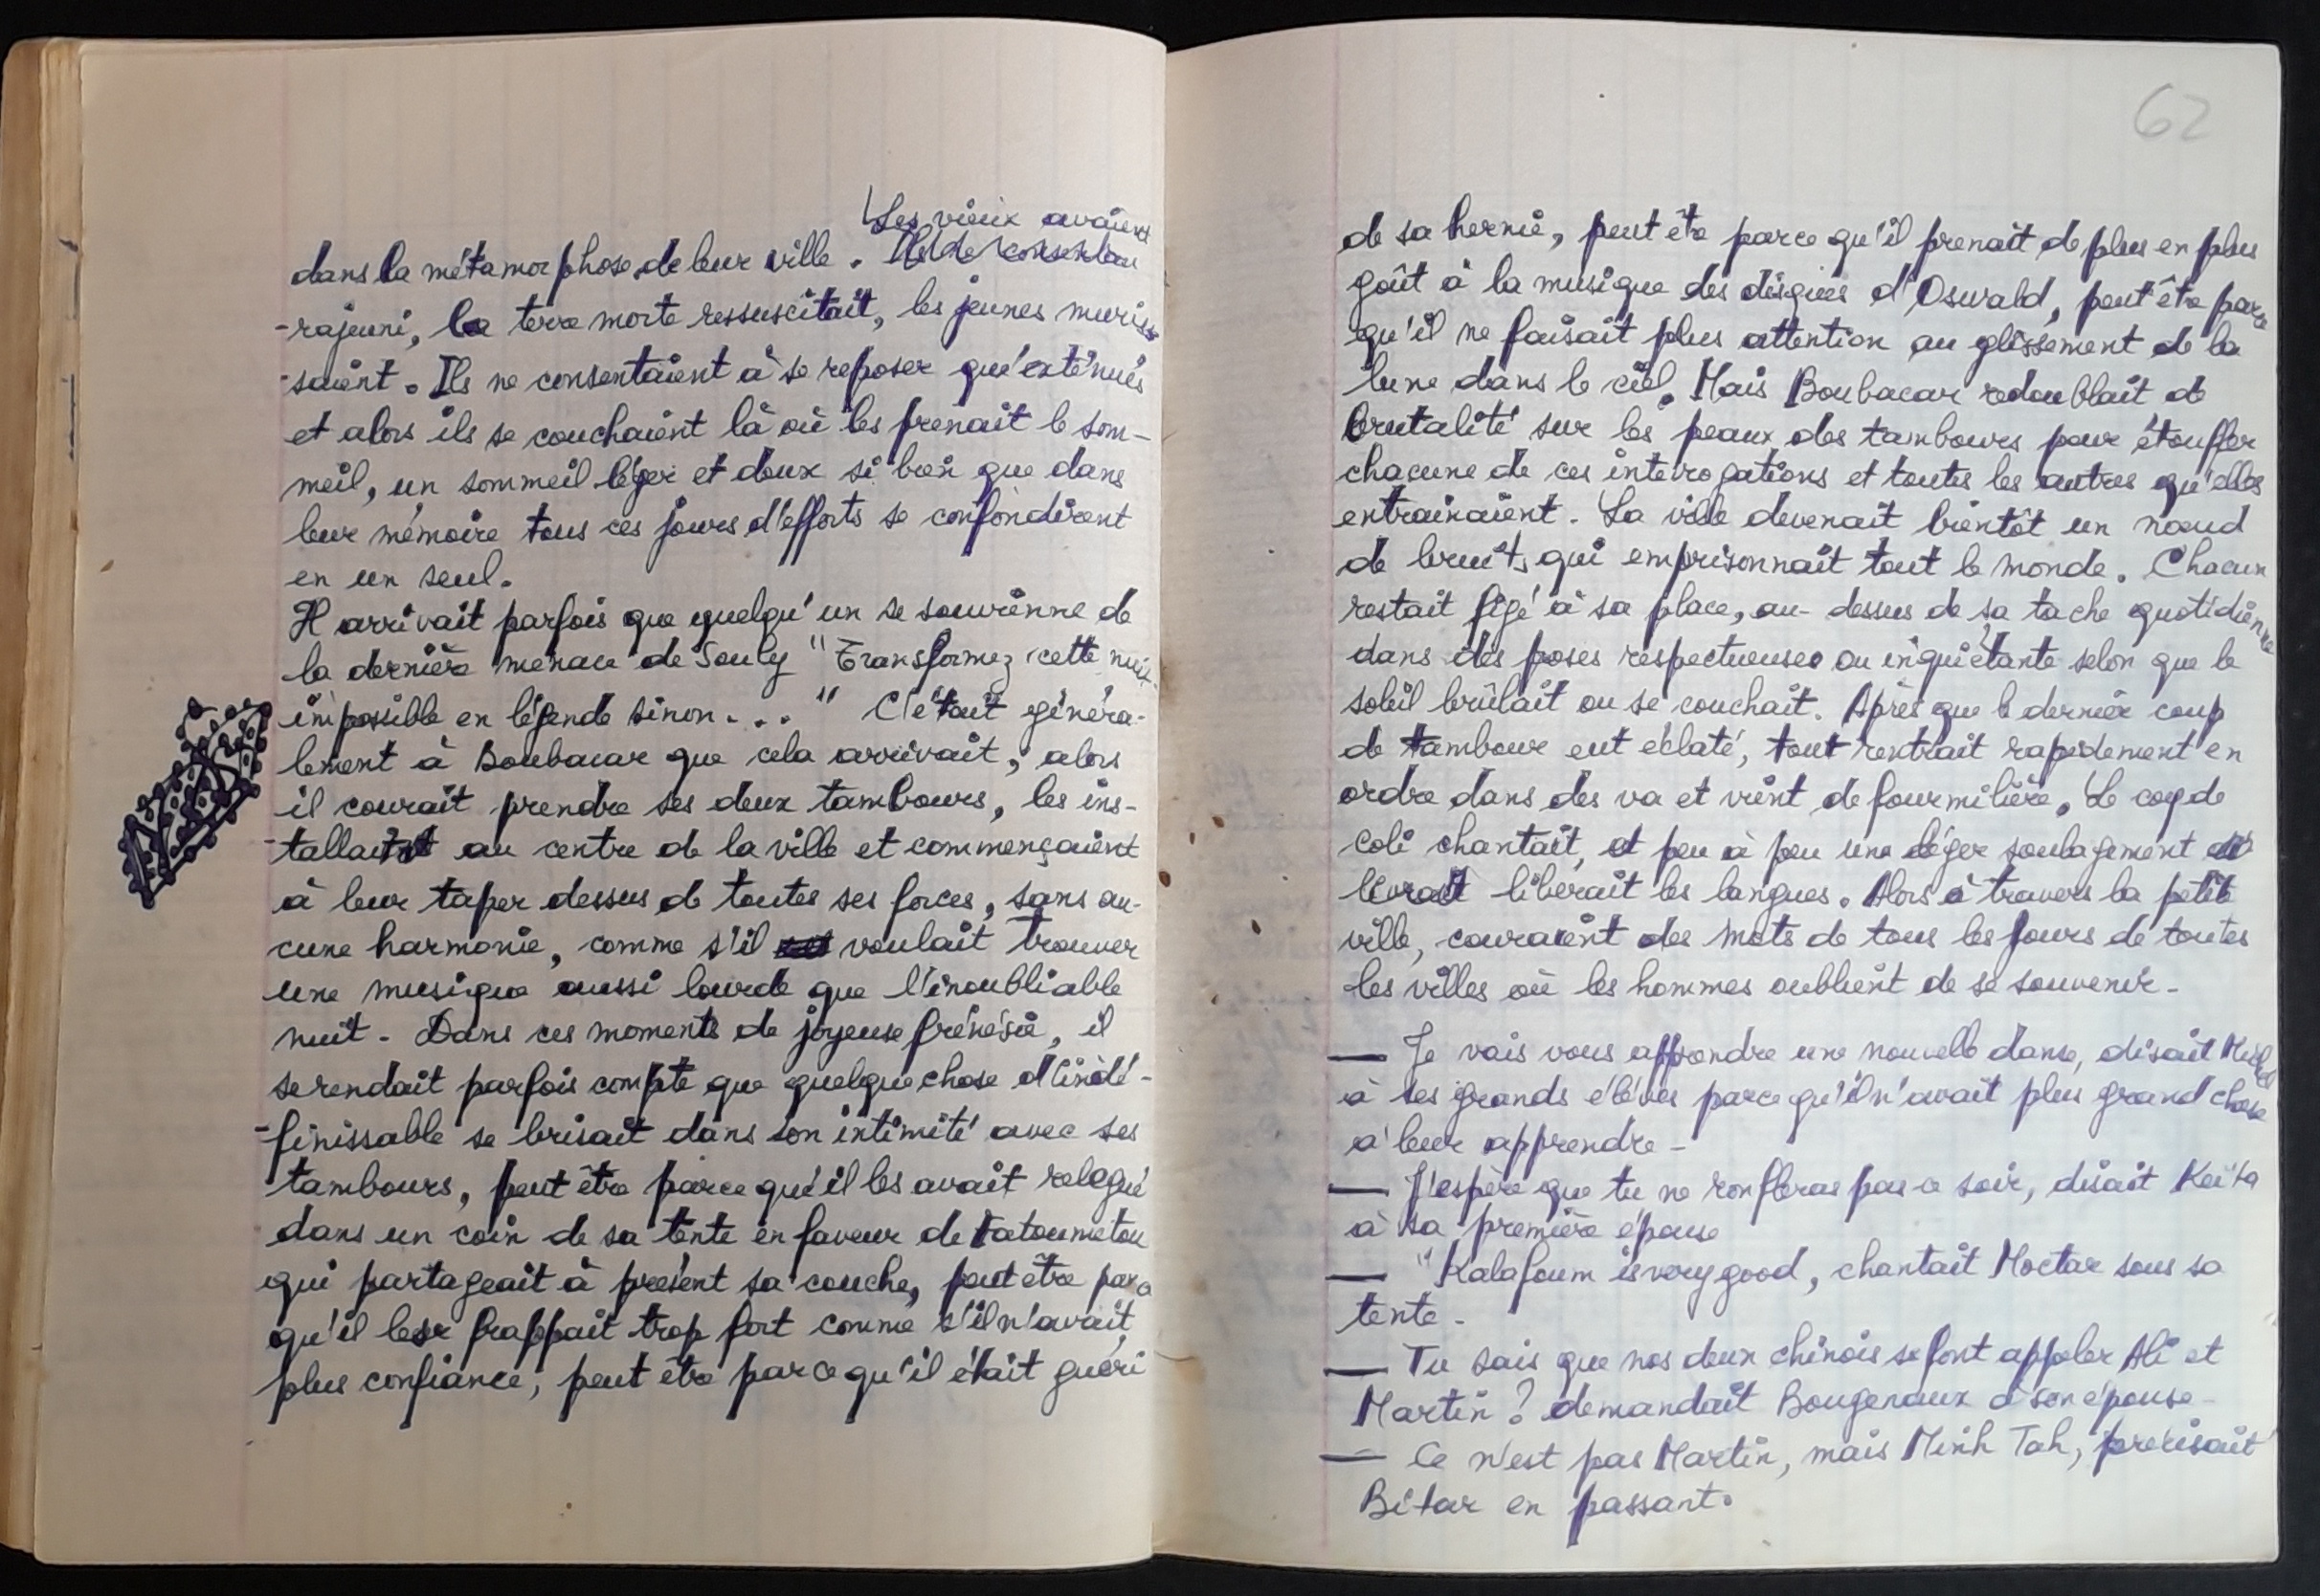 Les vieux avaient
dans la métamorphose de leur ville.
rajeuni, la terre morte ressuscitait, les jeunes muris-
saient. Ils ne consentaient à se reposer qu'exténués
et alors ils se couchaient là où les prenait le som-
meil, un sommeil léger et doux si bien que dans
leur mémoire tous ces jours d'efforts se confondirent
en un seul.
Il arrivait parfois que quelqu'un se souvienne de
la dernière menace de Souly "Transformez cette nuit
impossible en légende sinon... " C'était généra-
lement à Boubacar que cela arrivait, alors
il courait prendre ses deux tambours, les ins-
tallait au centre de la ville et commençaient
à leur taper dessus de toutes ses forces, sans au-
cune harmonie, comme s'il voulait trouver
une musique aussi lourde que l'inoubliable
nuit. Dans ces moments de joyeuse frénésie, il
se rendait parfois compte que quelque chose d'indé-
finissable se brisait dans son intimité avec ses
tambours, peut être parce qu'il les avait relegué
dans un coin de sa tente en faveur de Fatoumetou
qui partageait à présent sa couche, peut être parce
qu'il les frappait trop fort comme s'il n'avait
plus confiance, peut être parce qu'il était guéri
62
de sa hernie, peut être parce qu'il prenait de plus en plus
goût à la musique des disques d'Oswald, peut être parce
qu'il ne faisait plus attention au glissement de la
lune dans le ciel. Mais Boubacar redoublait de
brutalité sur les peaux des tambours pour étouffer
chacune de ces interrogations et toutes les autres qu'elles
entrainaient. La ville devenait bientôt un nœud
de bruits qui emprisonnait tout le monde. Chacun
restait figé à sa place, au-dessus de sa tache quotidienne
dans des poses respectueuses ou inquiétante selon que le
soleil brûlait ou se couchait. Après que le dernier coup
de tambour eut éclaté, tout rentrait rapidement en
ordre dans des va et vient de fourmilière. Le coq de
Coli chantait, et peu à peu une léger soulagement
libérait les langues. Alors à travers la petite
ville, couraient des mots de tous les jours de toutes
les villes où les hommes oublient de se souvenir.
— Je vais vous apprendre une nouvelle danse, disait
à ses grands élèves parce qu'il n'avait plus grand chose
à leur apprendre.
— J'espère que tu ne ronfleras pas ce soir, disait Keïta
à sa première épouse
— "Kalafoum is very good, chantait Moctar sous sa
tente.
— Tu sais que nos deux chinois se font appeler Ali et
Martin ? demandait Bougenaux à son épouse.
— Ce n'est pas Martin, mais Minh Tah, précisait
Bitar en passant.